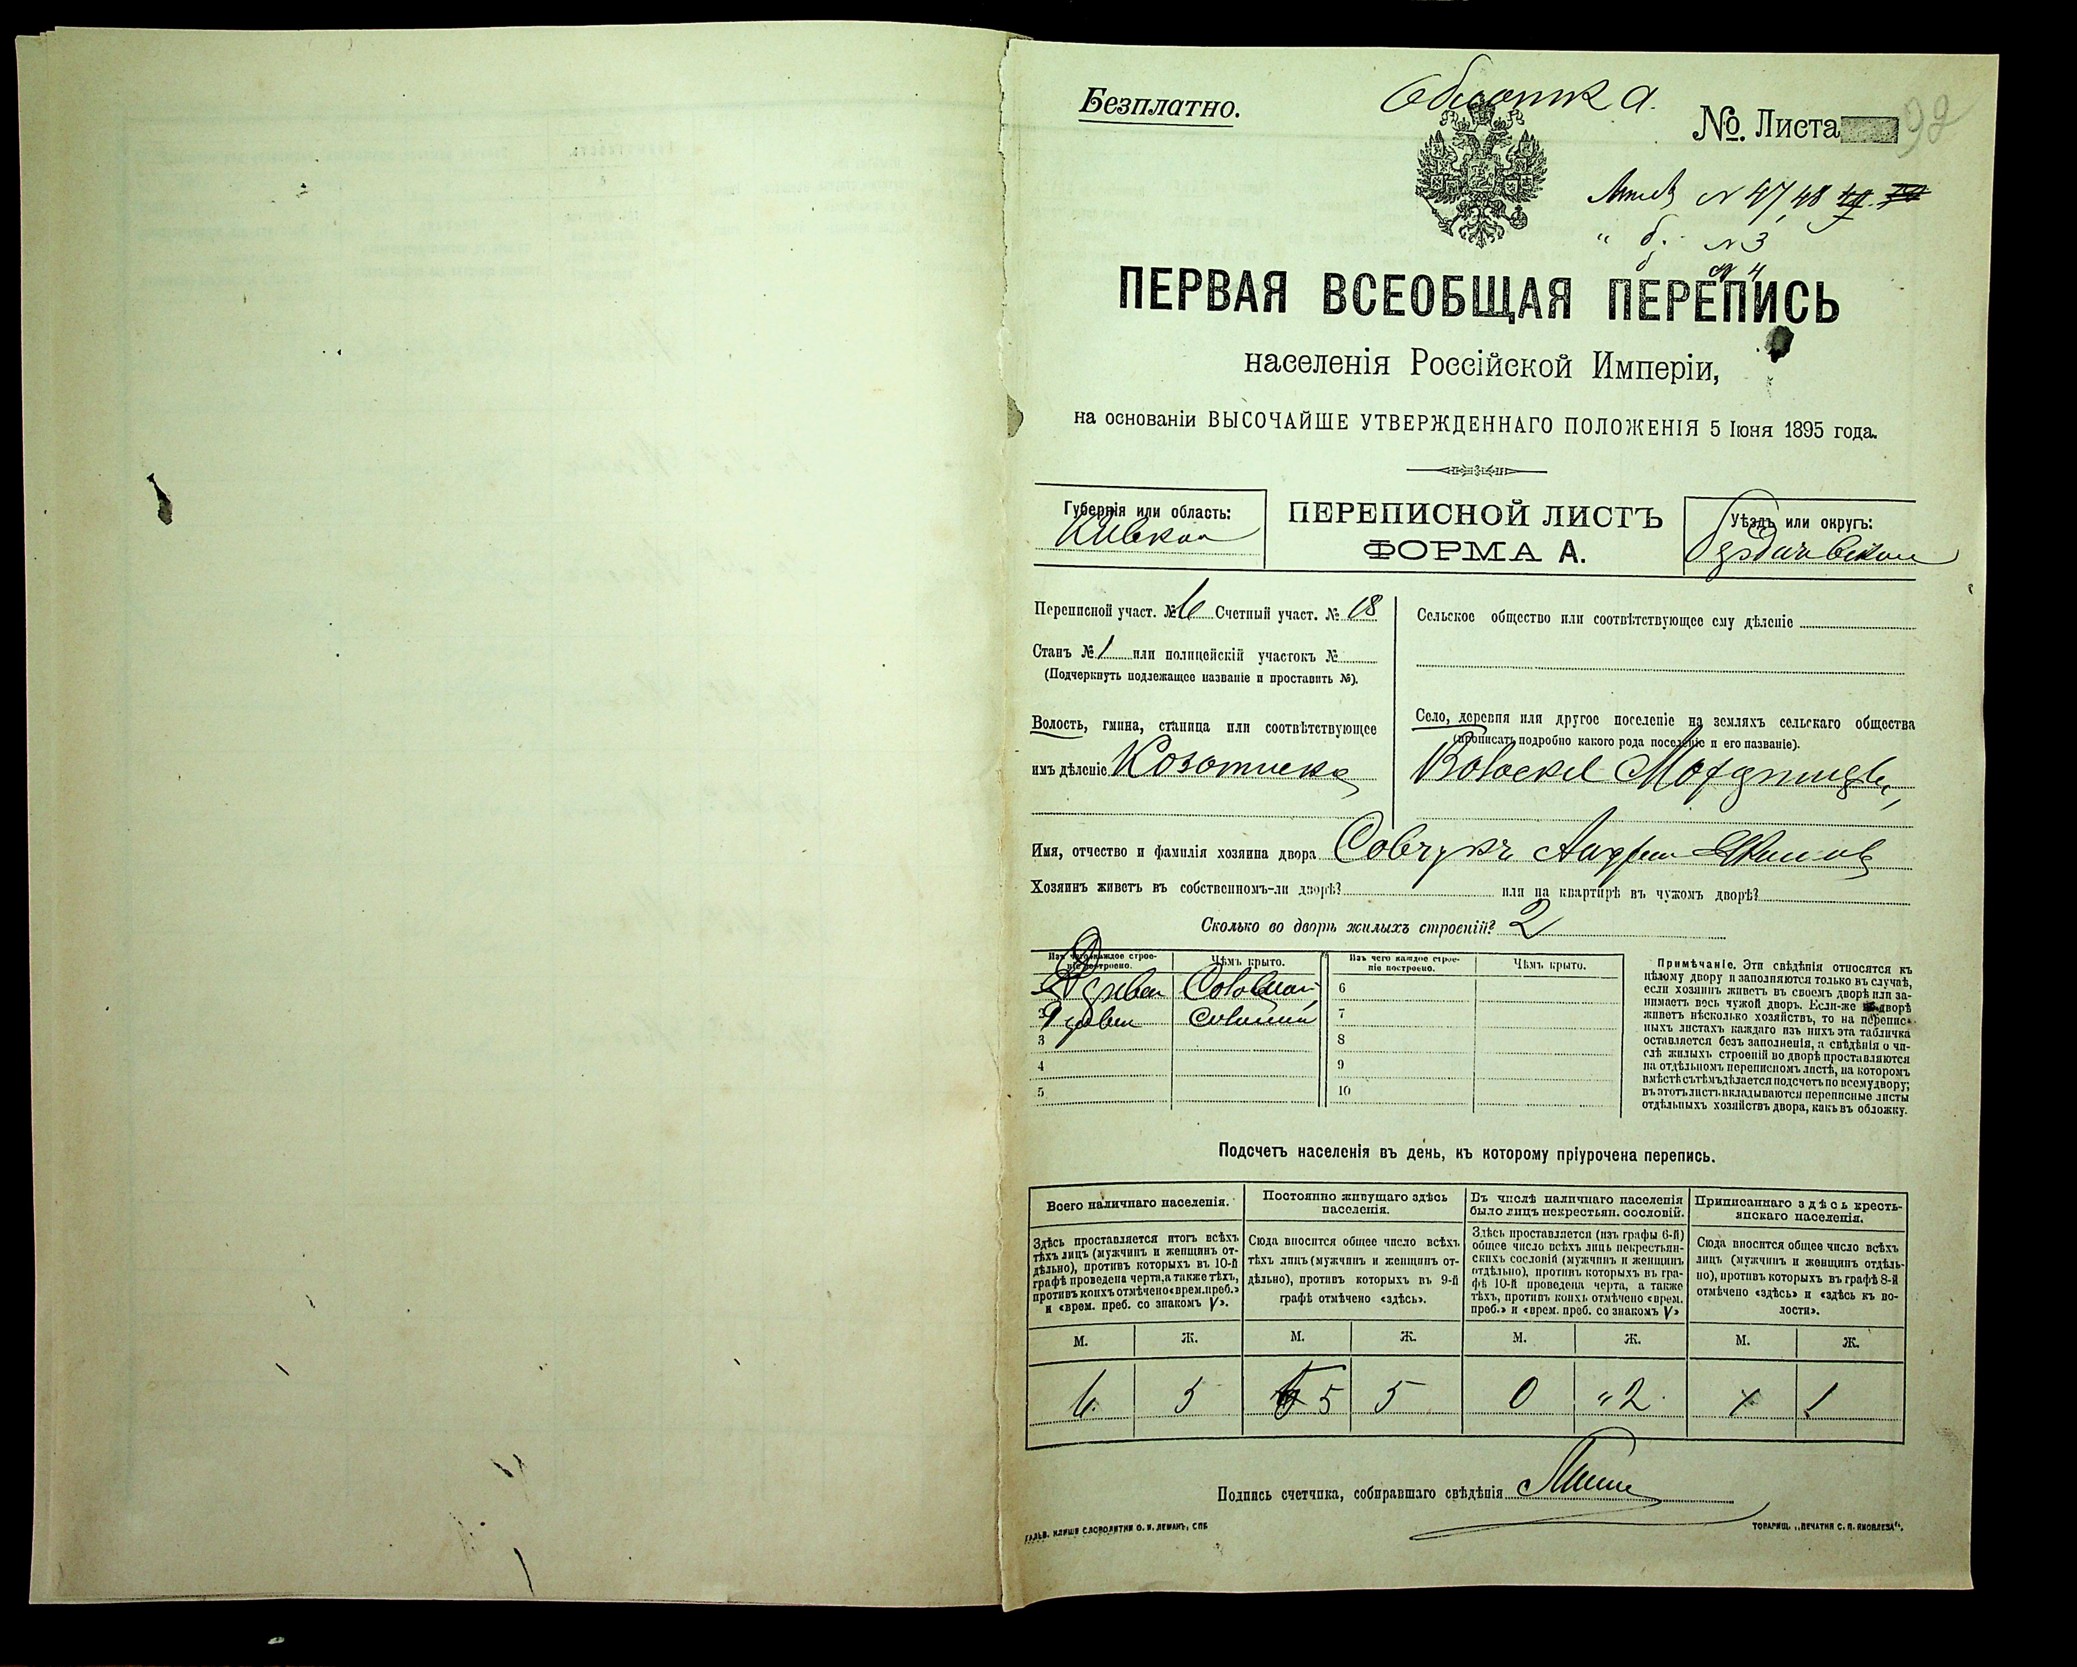 Безплатно.
Обложка.
№. Листа 92
Листъ № 47, 48
" б. № 3
№ 4
ПЕРВАЯ ВСЕОБЩАЯ ПЕРЕПИСЬ
населенія Россійской Имперіи,
на основаніи ВЫСОЧАЙШЕ УТВЕРЖДЕННАГО ПОЛОЖЕНІЯ 5 Іюня 1895 года.
Губернія или область:
Кіевская
ПЕРЕПИСНОЙ ЛИСТЪ
ФОРМА А.
Уѣздъ или округъ:
Бердичевскій
Переписной участ. № 6 Счетный участ. № 18
Станъ № 1 или полицейскій участокъ №
(Подчеркнуть подлежащее названіе и проставить №).
Волость, гмина, станица или соотвѣтствующее
имъ дѣленіе
Сельское общество или соотвѣтствующее ему дѣленіе
Село, деревня или другое поселеніе на земляхъ сельскаго общества
(прописать подробно какого рода поселеніе и его названіе).
Имя, отчество и фамилія хозяина двора Савчукъ Андрей
Хозяинъ живетъ въ собственномъ-ли дворѣ? или на квартирѣ въ чужомъ дворѣ?
Сколько во дворѣ жилыхъ строеній? 2
Изъ чего каждое строе-
ніе построено.
Чѣмъ крыто.
Изъ чего каждое строе-
ніе построено.
Чѣмъ крыто.
6
2 7
3 8
4 9
5 10
Примѣчаніе. Эти свѣдѣнія относятся къ
цѣлому двору и заполняются только въ случаѣ,
если хозяинъ живетъ въ своемъ дворѣ или за-
нимаетъ весь чужой дворъ. Если-же во дворѣ
живетъ нѣсколько хозяйствъ, то на перепис-
ныхъ листахъ каждаго изъ нихъ эта табличка
оставляется безъ заполненія, а свѣдѣнія о чи-
слѣ жилыхъ строеній во дворѣ проставляются
на отдѣльномъ переписномъ листѣ, на которомъ
вмѣстѣ съ тѣмъ дѣлается подсчетъ по всему двору;
въ этотъ листъ вкладываются переписные листы
отдѣльныхъ хозяйствъ двора, какъ въ обложку.
Подсчетъ населенія въ день, къ которому пріурочена перепись.
Всего наличнаго населенія.
Здѣсь проставляется итогъ всѣхъ
тѣхъ лицъ (мужчинъ и женщинъ от-
дѣльно), противъ которыхъ въ 10-й
графѣ проведена черта, а также тѣхъ,
противъ коихъ отмѣчено «врем. преб.»
и «врем. преб. со знакомъ V».
Постоянно живущаго здѣсь
населенія.
Сюда вносится общее число всѣхъ
тѣхъ лицъ (мужчинъ и женщинъ от-
дѣльно), противъ которыхъ въ 9-й
графѣ отмѣчено «здѣсь».
Въ числѣ наличнаго населенія
было лицъ некрестьян. сословій.
Здѣсь проставляется (изъ графы 6-й)
общее число всѣхъ лицъ некрестьян-
скихъ сословій (мужчинъ и женщинъ
отдѣльно), противъ которыхъ въ гра-
фѣ 10-й проведена черта, а также
тѣхъ, противъ коихъ отмѣчено «врем.
преб.» и «врем. преб. со знакомъ V»
Приписаннаго здѣсь кресть-
янскаго населенія.
Сюда вносится общее число всѣхъ
лицъ (мужчинъ и женщинъ отдѣль-
но), противъ которыхъ въ графѣ 8-й
отмѣчено «здѣсь» и «здѣсь къ во-
лости».
М. Ж. М. Ж. М. Ж. М. Ж.
6. 5 5 5 0 "2. 1
Подпись счетчика, собиравшаго свѣдѣнія
ГАЛЬВ. КЛИШЕ СЛОВОЛИТНИ О. И. ЛЕМАНЪ, СПБ
ТОВАРИЩ. „ПЕЧАТНЯ С. П. ЯКОВЛЕВА".